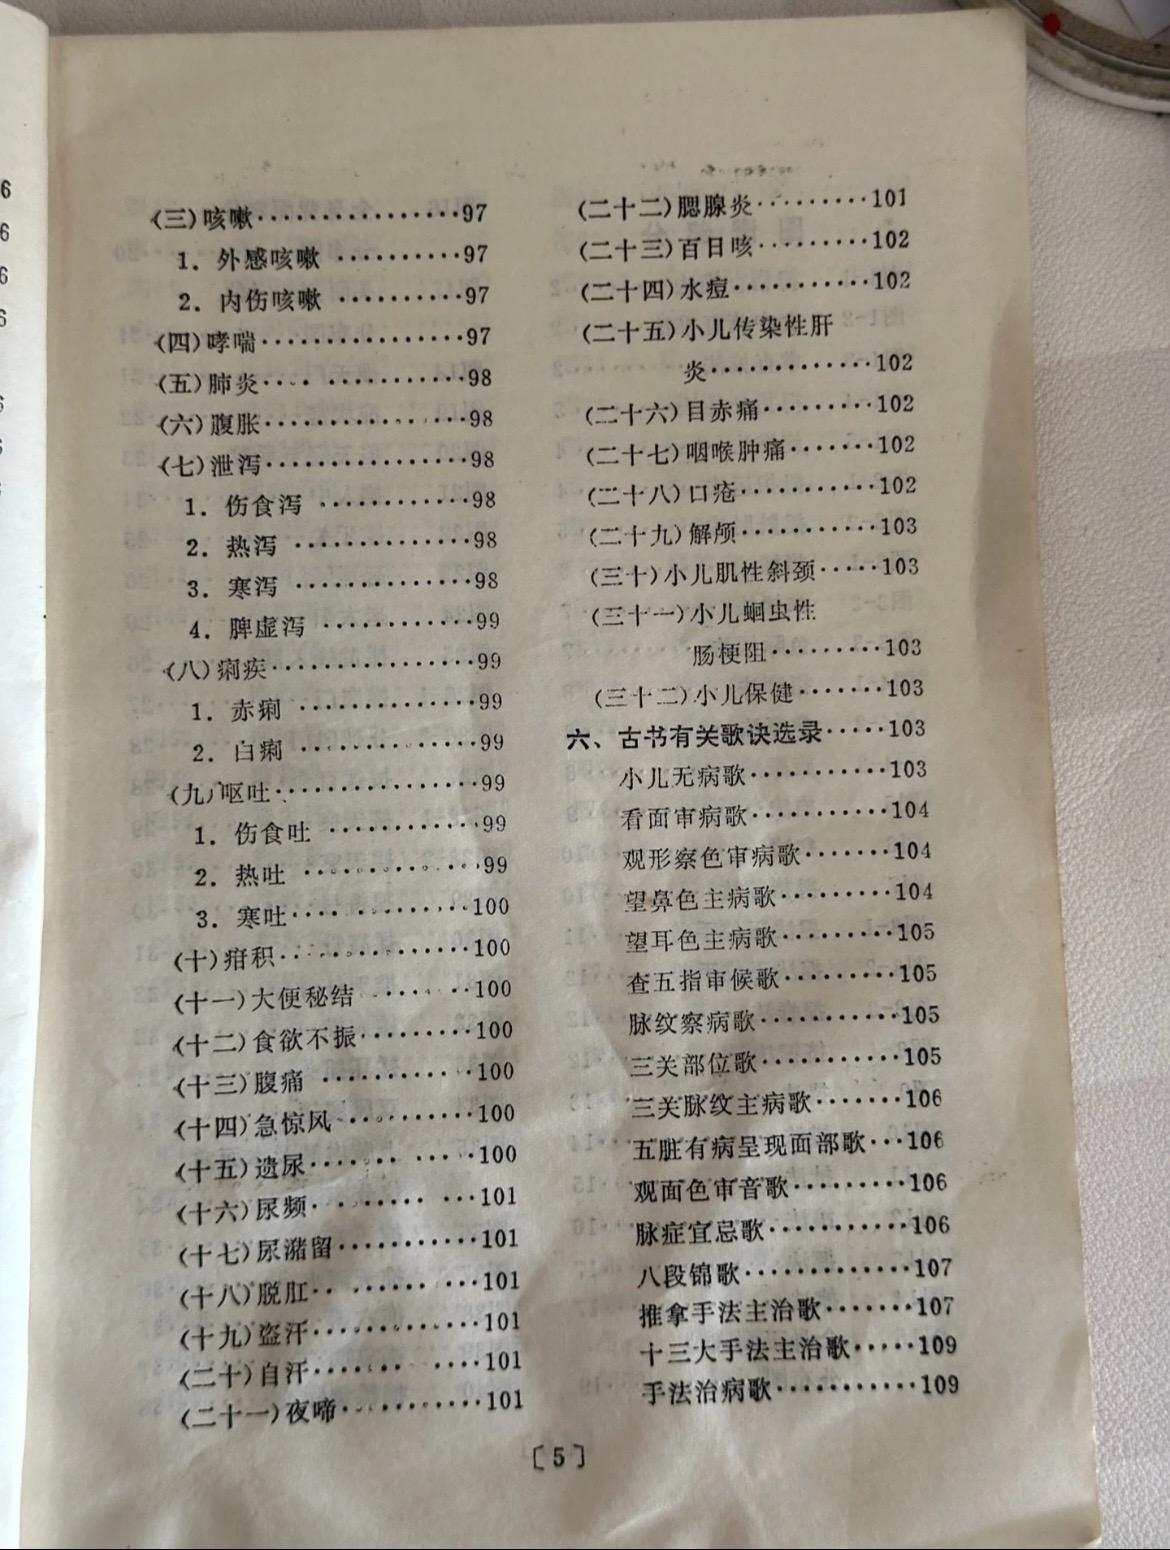 (三)咳嗽················97
1. 外感咳嗽 ··········97
2. 内伤咳嗽 ··········97
(四)哮喘················97
(五)肺炎···· ···········98
(六)腹胀················98
(七)泄泻················98
1. 伤食泻 ············98
2. 热泻 ··············98
3. 寒泻 ··············98
4. 脾虚泻 ············99
(八)痢疾················99
1. 赤痢 ··············99
2. 白痢 ··············99
(九)呕吐················99
1. 伤食吐 ············99
2. 热吐 ··············99
3. 寒吐··············100
(十)疳积···············100
(十一)大便秘结 ·········100
(十二)食欲不振·········100
(十三)腹痛 ············100
(十四)急惊风···········100
(十五)遗尿······· ·····100
(十六)尿频········· ···101
(十七)尿潴留···········101
(十八)脱肛·· ······ ···101
(十九)盗汗·············101
(二十)自汗······· ····101
(二十一)夜啼···········101
(二十二)腮腺炎·········101
(二十三)百日咳·········102
(二十四)水痘···········102
(二十五)小儿传染性肝
炎·············102
(二十六)目赤痛·········102
(二十七)咽喉肿痛·······102
(二十八)口疮···········102
(二十九)解颅···········103
(三十)小儿肌性斜颈·····103
(三十一)小儿蛔虫性
肠梗阻·········103
(三十二)小儿保健·······103
六、古书有关歌诀选录·····103
小儿无病歌···········103
看面审病歌···········104
观形察色审病歌·······104
望鼻色主病歌·········104
望耳色主病歌·········105
查五指审候歌·········105
脉纹察病歌···········105
三关部位歌···········105
三关脉纹主病歌·······106
五脏有病呈现面部歌···106
观面色审音歌·········106
脉症宜忌歌···········106
八段锦歌·············107
推拿手法主治歌·······107
十三大手法主治歌·····109
手法治病歌···········109
〔5〕